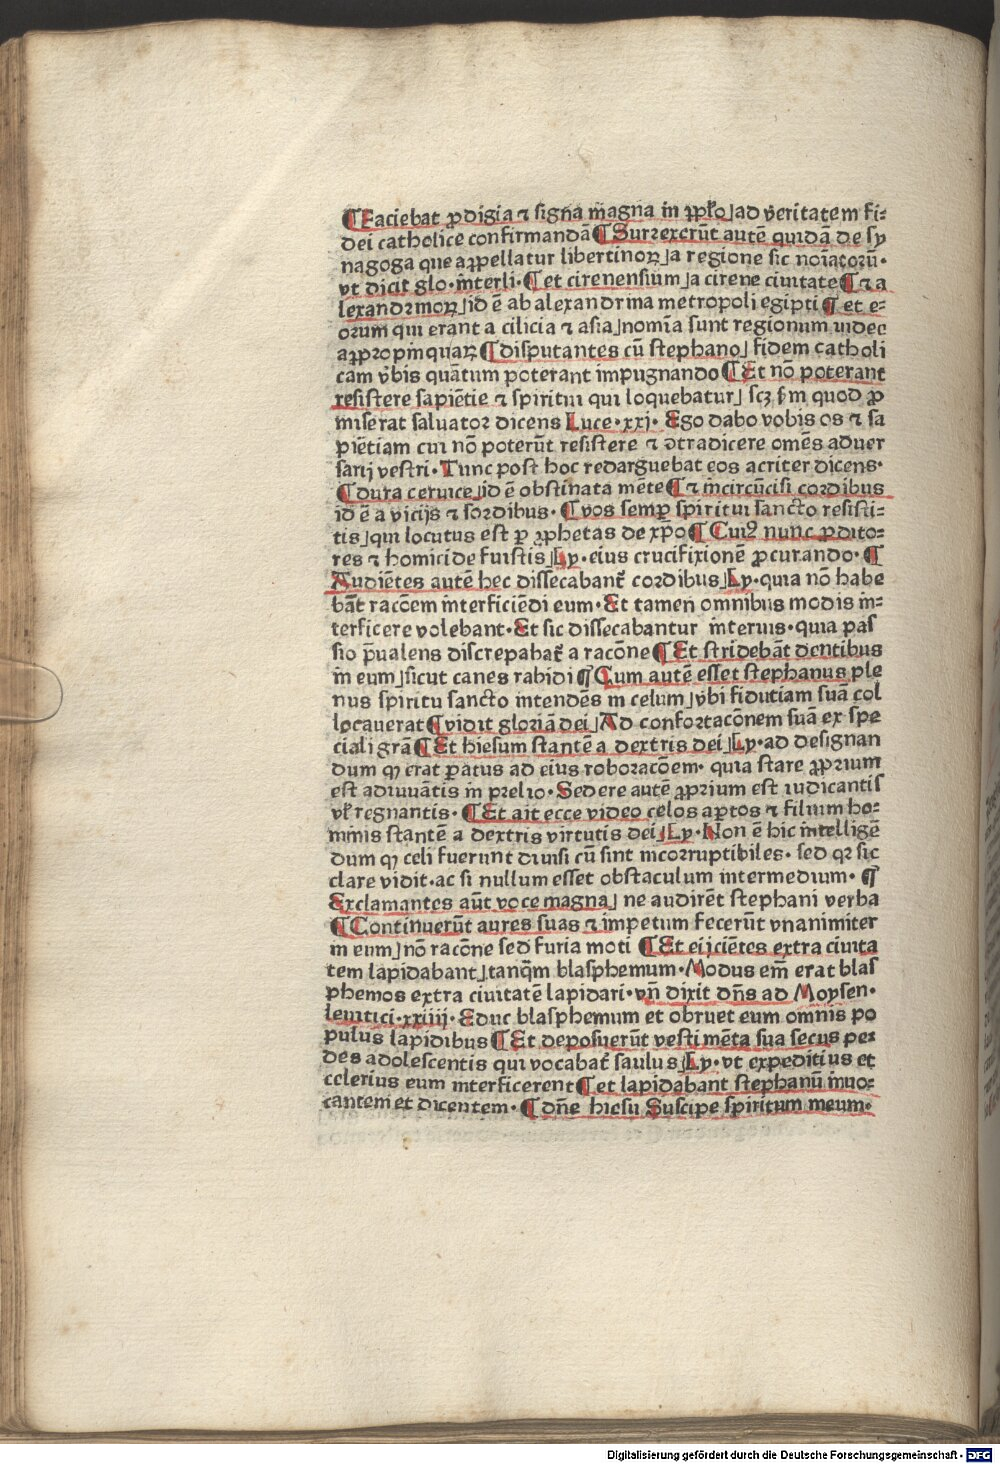 ¶Faciebat ꝓdigia ⁊ signa magna in ꝓpl'o ad v̄eritatem fi⸗
dei catholice confirmandā ¶Surrexerūt autē quidā de sy
nagoga que appellatur libertinoꝝ a regione sic noīatorū·
vt dicit glo·īnterli· ¶et cirenensium a cirene ciuitate ¶⁊ a
lexandrinoꝝ id ē ab alexandrina metropoli egipti ¶et e⸗
orum qui erant a cilicia ⁊ asia nomīa sunt regionum iudee
appropinquaꝝ ¶disputantes cū stephano fidem catholi
cam v̄bis quātum poterant impugnando ¶Et nō poterant
resistere sapiētie ⁊ spiritui qui loquebatur scꝫ s̄m quod ꝓ
miserat saluator dicens Luce·xxj· Ego dabo vobis os ⁊ sa
piētiam cui nō poterūt resistere ⁊ ꝯtradicere omēs aduer
sarij vestri· Tunc post hoc redarguebat eos acriter dicens·
¶dura ceruice id ē obstinata mēte ¶⁊ incircūcisi cordibus
id ē a vicijs ⁊ sordibus· ¶vos semꝑ spiritui sancto resisti⸗
tis qui locutus est ꝑ ꝓphetas de xp̄o ¶Cuiꝰ nunc ꝓdito⸗
res ⁊ homicide fuistis Ly·eius crucifixionē ꝓcurando· ¶
Audiētes autē hec dissecabant̄ cordibus Ly·quia nō habe
bāt racōem interficiēdi eum·Et tamen omnibus modis in⸗
terficere volebant·Et sic dissecabantur interius·quia pas
sio p̄ualens discrepabat̄ a racōne ¶Et stridebāt dentibus
in eum sicut canes rabidi ¶Cum autē esset stephanus ple
nus spiritu sancto intendēs in celum v̄bi fidutiam suā col
locauerat ¶vidit gloriā dei Ad confortacōnem suā ex spe
ciali grā ¶Et hiesum stantē a dextris dei Ly·ad designan
dum ꝙ erat ꝑatus ad eius roboracōem· quia stare ꝓprium
est adiuuātis in prelio·Sedere autē ꝓprium est iudicantis
vl' regnantis· ¶Et ait ecce video celos aꝑtos ⁊ filium ho⸗
minis stantē a dextris virtutis dei Ly·Non ē hic intelligē
dum ꝙ celi fuerunt diuisi cū sint incorruptibiles· sed qꝛ sic
clare vidit·ac si nullum esset obstaculum intermedium· ¶
Exclamantes aūt voce magna ne audirēt stephani verba
¶Continuerūt aures suas ⁊ impetum fecerūt vnanimiter
in eum nō racōne sed furia moti ¶Et eijciētes extra ciuita
tem lapidabant tanq̄m blasphemum·Modus em̄ erat blas
phemos extra ciuitatē lapidari·vn̄ dixit dn̄s ad Moysen·
leuitici·xxiiij·Educ blasphemum et obruet eum omnis po
pulus lapidibus ¶Et deposuerūt vestimēta sua secus pe⸗
des adolescentis qui vocabat̄ saulus Ly·vt expeditius et
celerius eum interficerent ¶et lapidabant stephanū inuo⸗
cantem et dicentem· ¶dn̄e hiesu Suscipe spiritum meum·
Digitalisierung gefördert durch die Deutsche Forschungsgemeinschaft - DFG